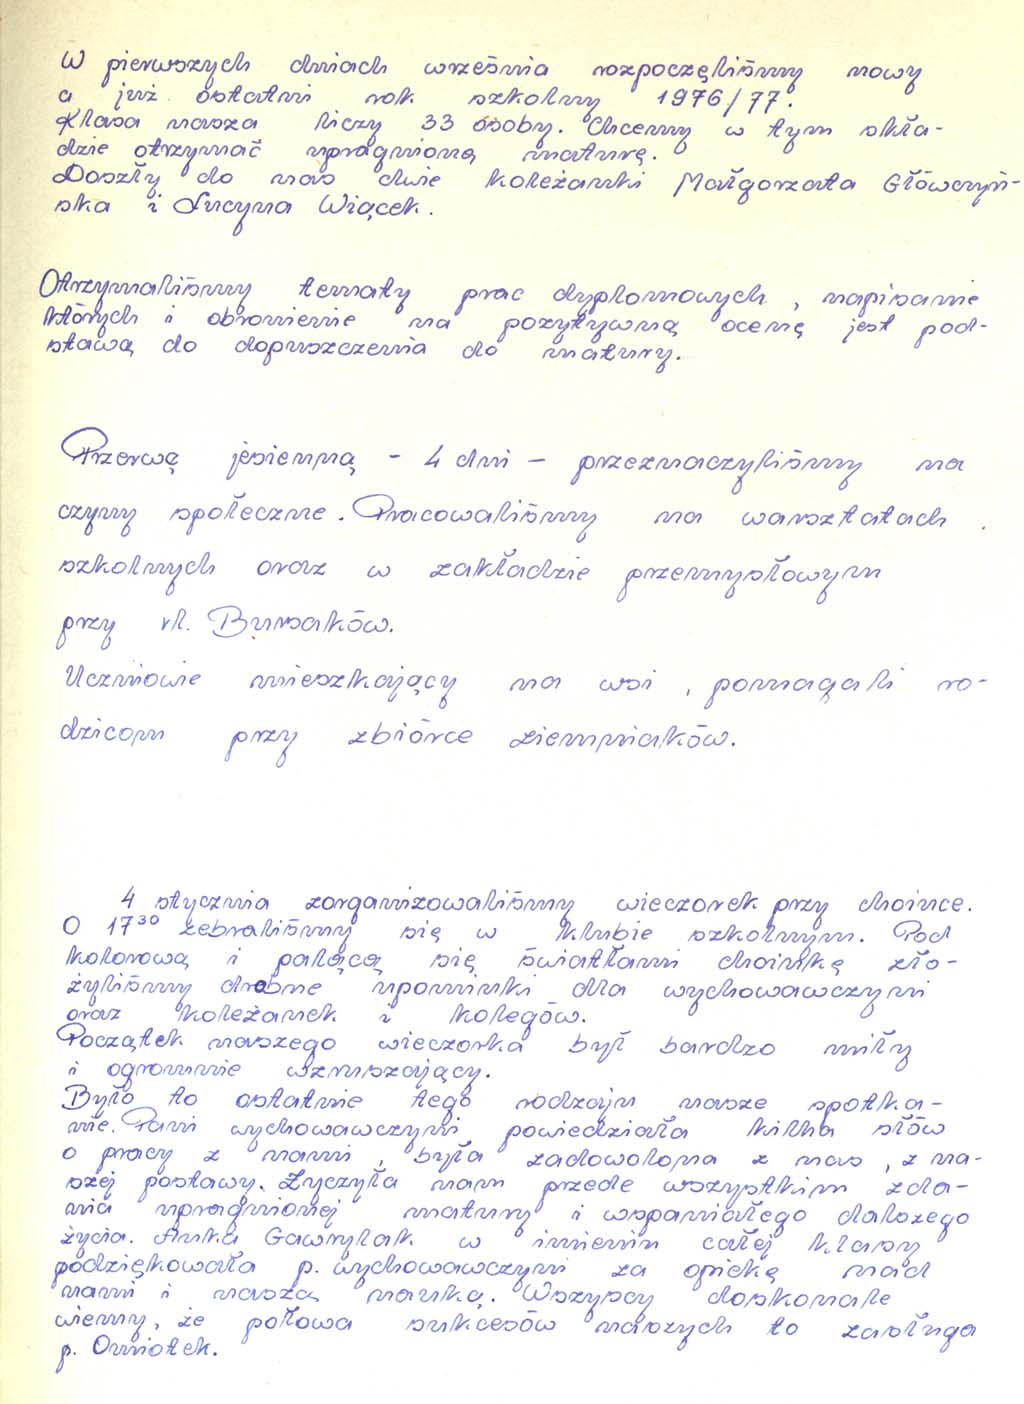 W pierwszych dniach września rozpoczęliśmy nowy
a już ostatni rok szkolny 1976/77.
Klasa nasza liczy 33 osoby. Chcemy w tym skła-
dzie otrzymać upragnioną maturę.
Doszły do nas dwie koleżanki Małgorzata Główczyń-
ska i Lucyna Wiącek.
Otrzymaliśmy tematy prac dyplomowych, napisanie
których i obronienie na pozytywną ocenę jest pod-
stawą do dopuszczenia do matury.
Przerwę jesienną - 4 dni - przeznaczyliśmy na
czyny społeczne. Pracowaliśmy na warsztatach
szkolnych oraz w zakładzie przemysłowym
przy ul. Bursaków.
Uczniowie mieszkający na wsi, pomagali ro-
dzicom przy zbiórce ziemniaków.
4 stycznia zorganizowaliśmy wieczorek przy choince.
O 17³⁰ zebraliśmy się w klubie szkolnym. Pod
kolorową i palącą się światłami choinkę zło-
żyliśmy drobne upominki dla wychowawczyni
oraz koleżanek i kolegów.
Początek naszego wieczorka był bardzo miły
i ogromnie wzruszający.
Było to ostatnie tego rodzaju nasze spotka-
nie. Pani wychowawczyni powiedziała kilka słów
o pracy z nami, była zadowolona z nas, z na-
szej postawy. Życzyła nam przede wszystkim zda-
nia upragnionej matury i wspaniałego dalszego
życia. Anka Gawrylak w imieniu całej klasy
podziękowała p. wychowawczyni za opiekę nad
nami i naszą nauką. Wszyscy doskonale
wiemy, że połowa sukcesów naszych to zasługa
p. Omiotek.